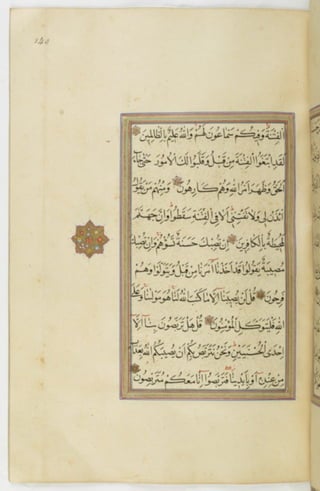 الفتنة وفيكم سماعون لهم والله عليم بالظالمين
لقد ابتغوا الفتنة من قبل وقلبوا لك الامور حتى جاء
الحق وظهر امر الله وهم كارهون ومنهم من يقول
ائذن لي ولا تفتني الا في الفتنة سقطوا وان جهنم
لمحيطة بالكافرين ان تصبك حسنة تسؤهم وان تصبك
مصيبة يقولوا قد اخذنا امرنا من قبل ويتولوا وهم
فرحون قل لن يصيبنا الا ما كتب الله لنا هو مولينا وعلى
الله فليتوكل المؤمنون قل هل تربصون بنا الا
احدى الحسنيين ونحن نتربص بكم ان يصيبكم الله بعذاب
من عنده او بايدينا فتربصوا انا معكم متربصون